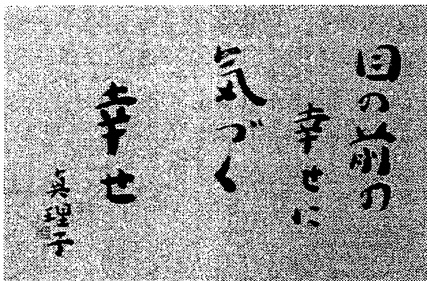 目の前の
幸せに
気づく
幸せ
真理子